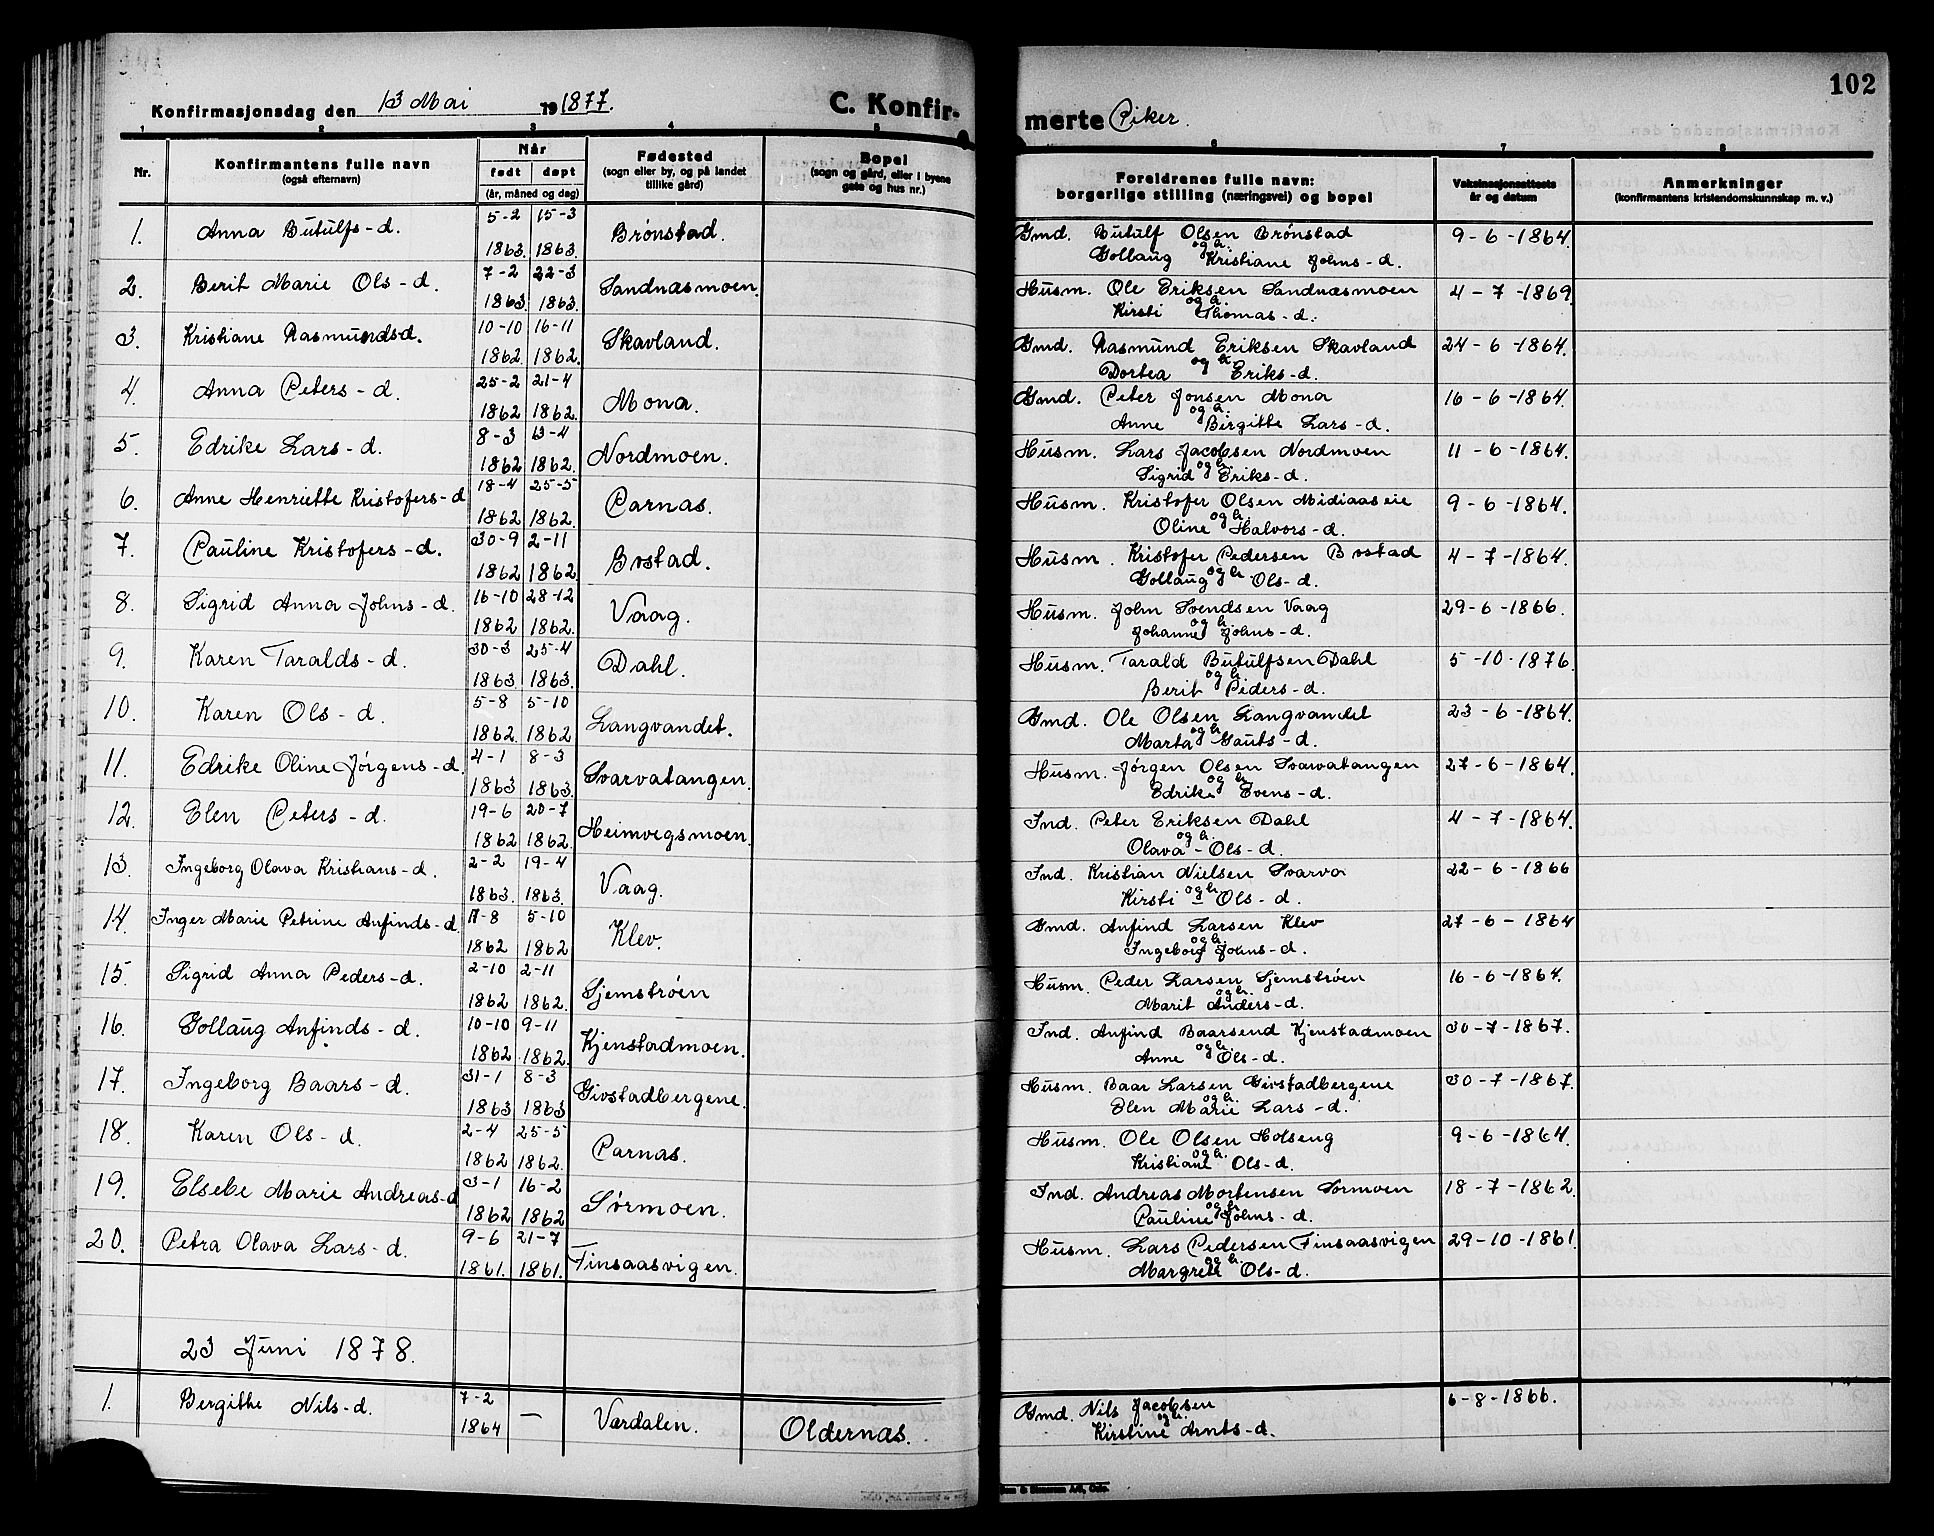 102
Konfirmasjonsdag den 13 Mai 19 1877. C. Konfirmerte Piker.
1 2 3 4 5 6 7 8
Nr. Konfirmantens fulle navn (også efternavn) Når født døpt (år, måned og dag) Fødested (sogn eller by, og på landet tillike gård) Bopel (sogn og gård, eller i byene gate og hus nr.) Foreldrenes fulle navn: borgerlige stilling (næringsvei) og bopel Vaksinasjonsattests år og datum Anmerkninger (konfirmantens kristendomskunnskap m. v.)
1. Anna Butulfs-d. 5-2 1863. 15-3 1863. Brønstad. Gmd. Butulf Olsen Brønstad og h. Gollaug Kristiane Johns-d. 9-6-1864.
2. Berit Marie Ols-d. 7-2 1863. 22-3 1863. Sandnæsmoen. Husm. Ole Eriksen Sandnæsmoen og h. Kirsti Thomas-d. 4-7-1869.
3. Kristiane Rasmundsd. 10-10 1862. 16-11 1862. Skavland. Gmd. Rasmund Eriksen Skavland og h. Dortea Eriks-d. 24-6-1864.
4. Anna Peters-d. 25-2 1862 21-4 1862. Mona. Gmd. Peter Jonsen Mona og h. Anne Birgitte Lars-d. 16-6-1864.
5. Edrike Lars-d. 8-3 1862 13-4 1862. Nordmoen. Husm. Lars Jacobsen Nordmoen og h. Sigrid Eriks-d. 11-6-1864.
6. Anne Henriette Kristofers-d 18-4 1862 25-5 1862. Parnas. Husm. Kristofer Olsen Midiaaseie og h. Oline Halvors-d. 9-6-1864.
7. Pauline Kristofers-d. 30-9 1862 2-11 1862 Bostad. Husm. Kristofer Pedersen Bostad og h. Gollaug Ols-d. 4-7-1864.
8. Sigrid Anna Johns-d. 16-10 1862 28-12 1862. Vaag. Husm. John Svendsen Vaag og h. Johanne Johns-d. 29-6-1866.
9. Karen Taralds-d. 30-3 1863. 25-4 1863. Dahl. Husm. Tarald Butulfsen Dahl og h. Berit Peders-d. 5-10-1876.
10. Karen Ols-d. 5-8 1862. 5-10 1862 Langvandet. Gmd. Ole Olsen Langvandet og h. Marta Gauts-d. 23-6-1864.
11. Edrike Oline Jørgens-d. 4-1 1863 8-3 1863. Svarvatangen. Husm. Jørgen Olsen Svarvatangen og h. Edrike Evens-d. 27-6-1864.
12. Elen Peters-d. 19-6 1862 20-7 1862 Heimvegsmoen. Ind. Peter Eriksen Dahl og h. Olava Ols-d. 4-7-1864.
13. Ingeborg Olava Kristians-d. 2-2 1863. 19-4 1863. Vaag. Ind. Kristian Nielsen Svarva og h. Kirsti Ols-d. 22-6-1866
14. Inger Marie Petrine Anfinds-d. 17-8 1862 5-10 1862 Klev. Gmd. Anfind Larsen Klev og h. Ingeborg Johns-d. 27-6-1864
15. Sigrid Anna Peders-d. 2-10 1862 2-11 1862. Sjemstrøen Husm. Peder Larsen Sjemstrøen og h. Marit Anders-d. 16-6-1864.
16. Gollaug Anfinds-d. 10-10 1862 9-11 1862. Kjenstadmoen. Ind. Anfind Baarsend Kjenstadmoen og h. Anne Ols-d. 30-7-1867.
17. Ingeborg Baars-d. 31-1 1863 8-3 1863 Givstadbergene. Husm. Baar Larsen Givstadbergene og h. Elen Marie Lars-d. 30-7-1867.
18. Karen Ols-d. 2-4 1862 25-5 1862. Parnas. Husm. Ole Olsen Holseng og h. Kristiane Ols-d. 9-6-1864.
19. Elsebe Marie Andreas-d 3-1 1862 16-2 1862 Sørmoen. Ind. Andreas Mortensen Sørmoen og h. Pauline Johns-d. 18-7-1862.
20. Petra Olava Lars-d. 9-6 1861. 21-7 1861. Finsaasvigen. Husm. Lars Pedersen Finsaasvigen og h. Margrete Ols-d. 29-10-1861.
23 Juni 1878.
1. Bergithe Nils-d. 7-2 1864 — Værdalen. Oldernæs. Gmd. Nils Jacobsen og h. Kirstine Arnts-d. 6-8-1866.